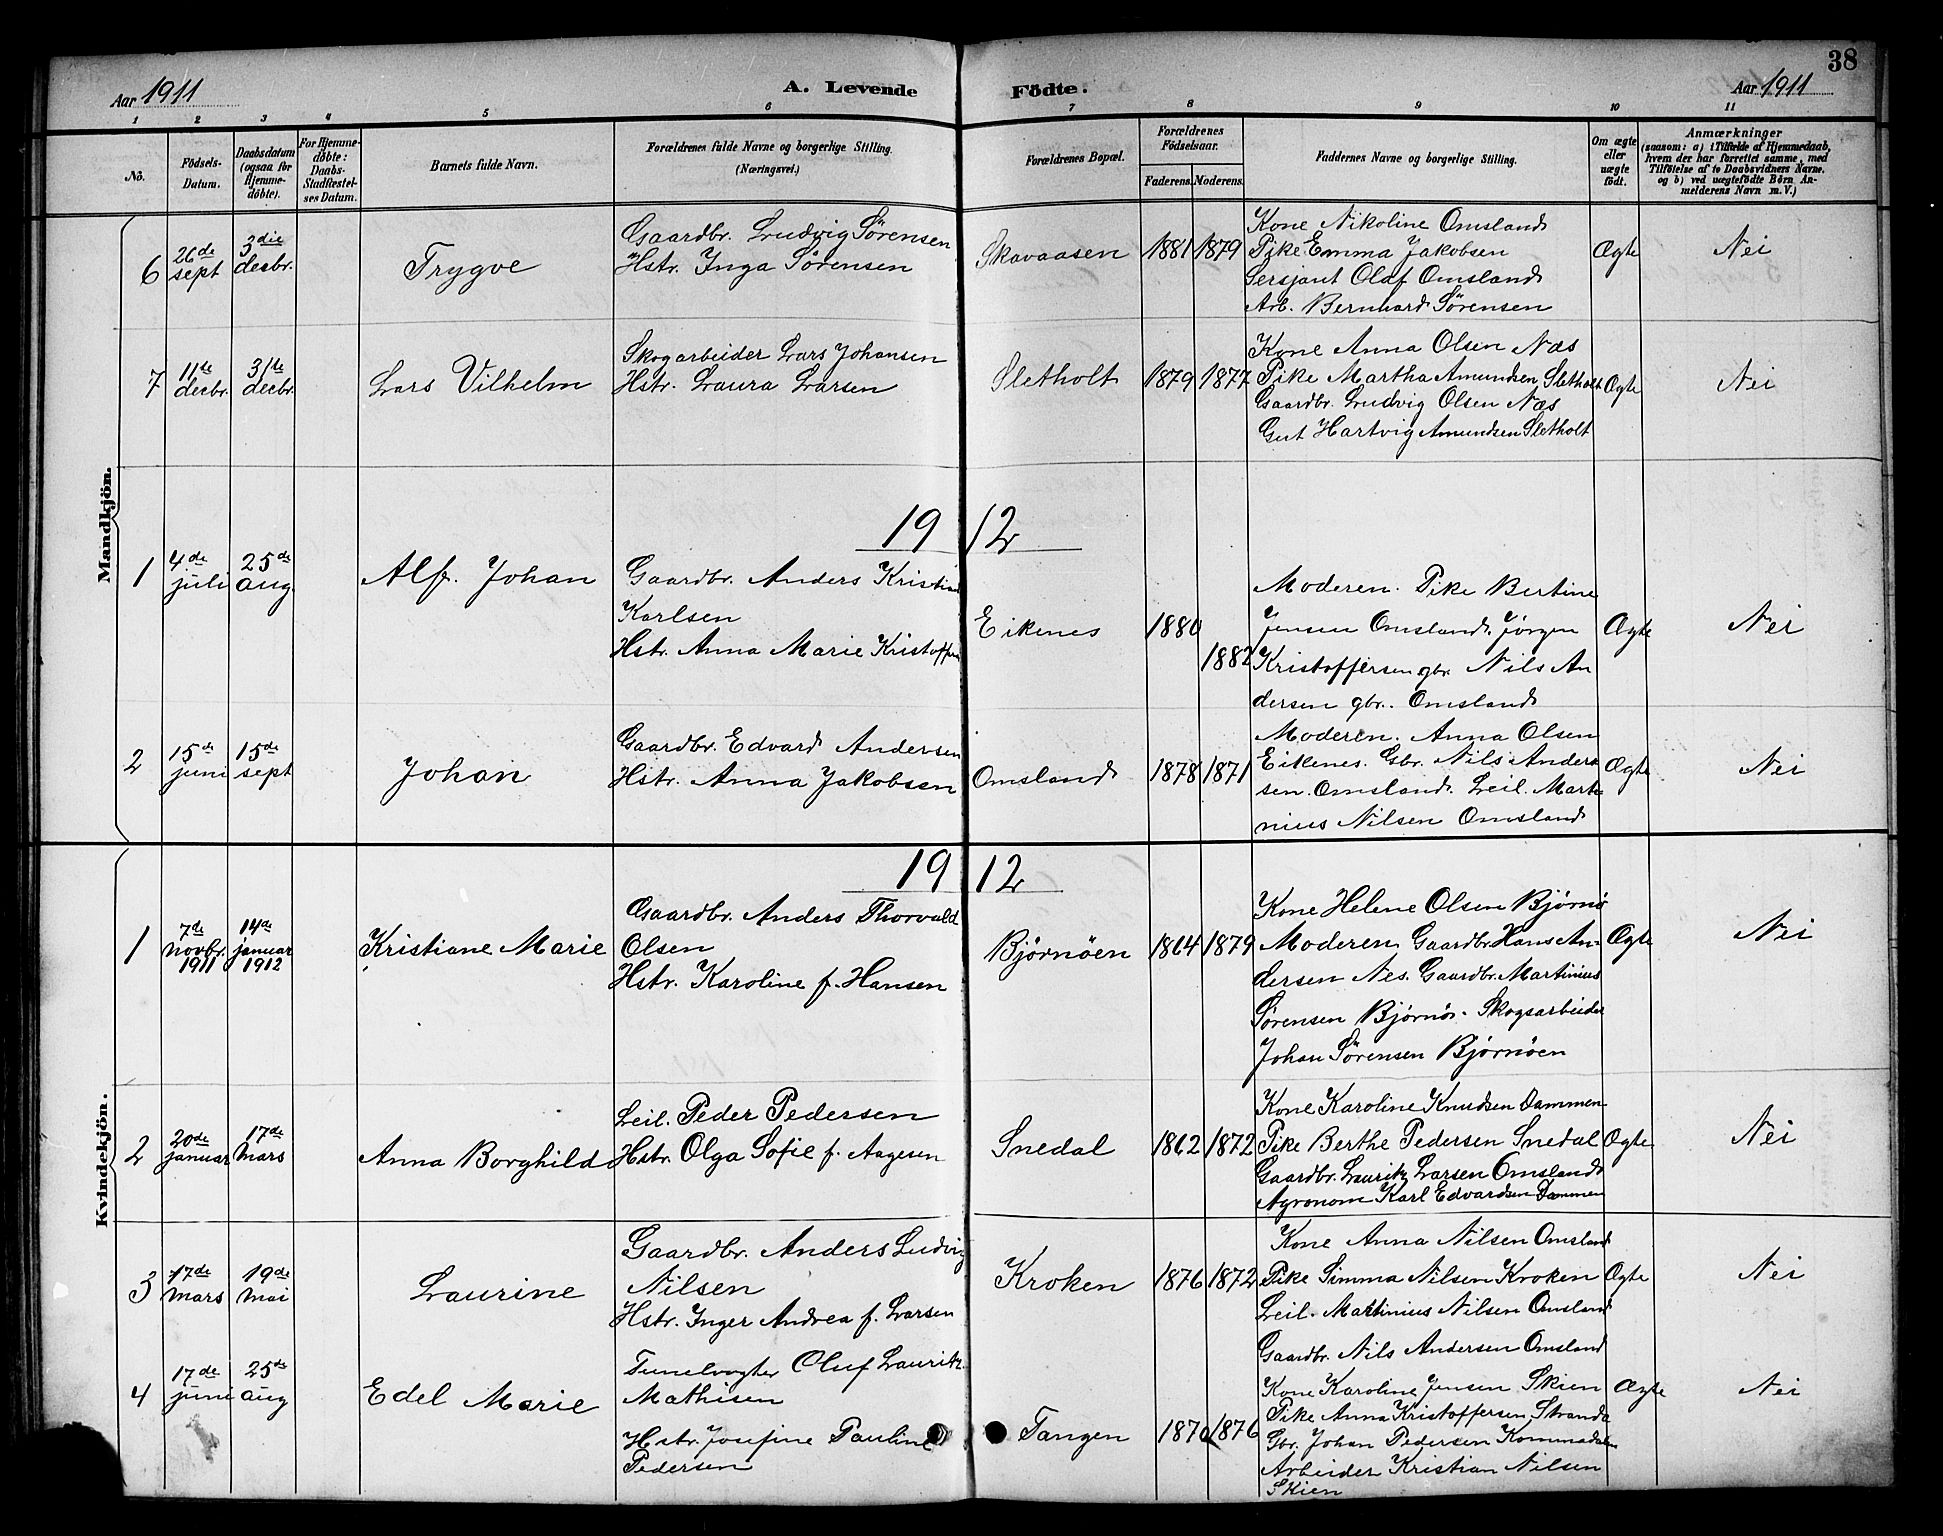 38
Aar 1911
A. Levende Födte.
Aar 1911
1 2 3 4 5 6 7 8 9 10 11
No.
Födsels-
Datum.
Daabsdatum
(ogsaa for
Hjemme-
döbte).
For Hjemme-
döbte:
Daabs-
Stadfæstel-
ses Datum.
Barnets fulde Navn.
Forældrenes fulde Navne og borgerlige Stilling.
(Næringsvei.)
Forældrenes Bopæl.
Forældrenes
Födselsaar.
Faderens. Moderens.
Faddernes Navne og borgerlige Stilling.
Om ægte
eller
uægte
födt.
Anmærkninger
(saasom: a) i Tilfælde af Hjemmedaab,
hvem der har forrettet samme, med
Tilföielse af to Daabsvidners Navne,
og b) ved uægtefödte Börn An-
melderens Navn m. V.)
Mandkjön.
6
26de
sept
3die
decbr.
Trygve
Gaardbr. Ludvig Sørensen
Hstr. Inga Sørensen
Skavaasen
1881 1879
Kone Nikoline Omsland
Pike Emma Jakobsen
Sersjant Olaf Omsland
Arb. Bernhard Sørensen
Ægte
Nei
7
11te
decbr.
31te
decbr.
Lars Vilhelm
Skogarbeider Lars Johansen
Hstr. Laura Larsen
Sletholt
1879 1877
Kone Anna Olsen Næs
Pike Martha Amundsen Sletholt
Gaardbr. Ludvig Olsen Næs
Gut Hartvig Amundsen Sletholt
Ægte
Nei
1912
1
4de
juli
25de
aug
Alfr. Johan
Gaardbr. Anders Kristian
Karlsen
Hstr. Anna Marie Kristoffersen
Eikenes
1880
1882
Moderen. Pike Bertine
Jensen Omsland. Jörgen
Kristoffersen gbr. Nils An
dersen gbr. Omsland
Ægte
Nei
2
15de
juni
15de
sept
Johan
Gaardbr. Edvard Andersen
Hstr. Anna Jakobsen
Omsland
1878 1871
Moderen. Anna Olsen
Eikenes. Gbr. Nils Ander
sen. Omsland. Leil. Marti-
nius Nilsen Omsland
Ægte
Nei
Kvindekjön.
1912
1
7de
novbr.
1911
14de
januar
1912
Kristiane Marie
Gaardbr. Anders Thorvald
Olsen
Hstr. Karoline f. Hansen
Bjørnöen
1864 1879
Kone Helene Olsen Bjørnö
Moderen Gaardbr. Hans An-
dersen Nes. Gaardbr. Martinius
Sørensen Bjørnö. Skogsarbeider
Johan Sørensen Bjørnöen
Ægte
Nei
2
20de
januar
17de
mars
Anna Borghild
Leil. Peder Pedersen
Hstr. Olga Sofie f. Aagesen
Snedal
1862 1872
Kone Karoline Knudsen Dammen
Pike Berthe Pedersen Snedal
Gaardbr. Lauritz Larsen Omsland
Agronom Karl Edvardsen Dammen
Ægte
Nei
3
17de
mars
19de
mai
Laurine
Gaardbr. Anders Ludvig
Nilsen
Hstr. Inger Andrea f. Larsen
Kroken
1876 1872
Kone Anna Nilsen Omsland
Pike Simma Nilsen Kroken
Leil. Martinius Nilsen Omsland
Gaardbr. Nils Andersen Omsland
Ægte
Nei
4
17de
juni
25de
aug
Edel Marie
Tunelvogter Oluf Lauritz
Mathisen
Hstr. Josefine Pauline
Pedersen
Tangen
1870 1876
Kone Karoline Jensen Skien
Pike Anna Kristoffersen Stranda
Gbr. Johan Pedersen Kommedalen
Arbeider Kristian Nilsen
Skien
Ægte
Nei